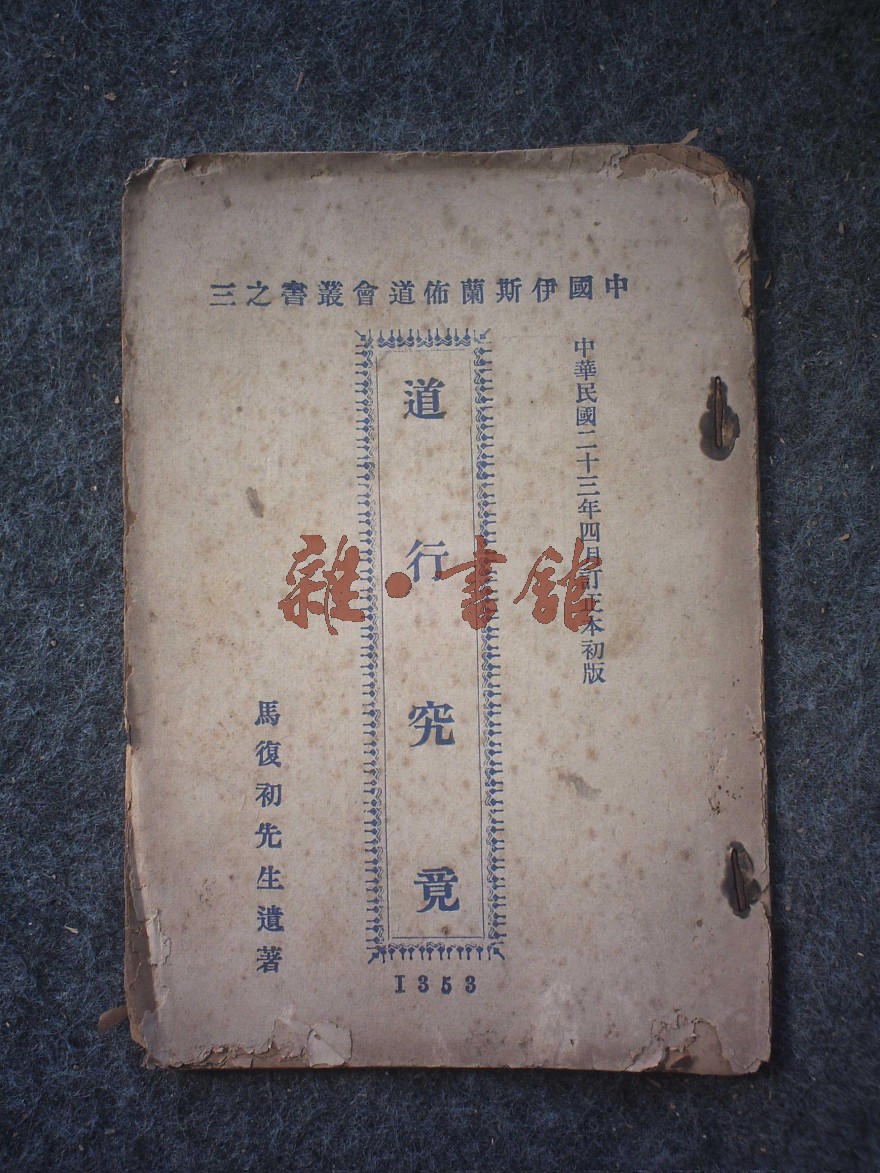 中國伊斯蘭佈道會叢書之三
中華民國二十三年四月訂正本初版
道行究竟
馬復初先生遺著
1353
雜·書館